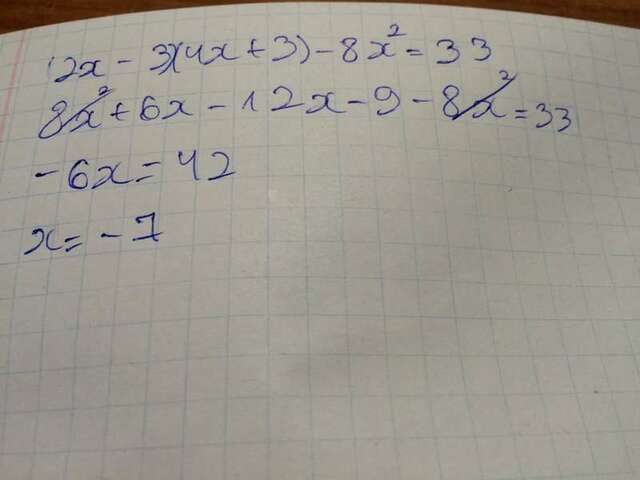 (2x - 3)(4x + 3) - 8x² = 33
8x² + 6x - 12x - 9 - 8x² = 33
- 6x = 42
x = - 7